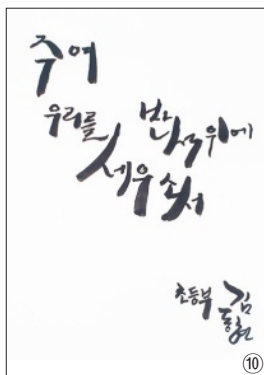 주여
우리를 반석위에
세우소서
초등부 김
⑩